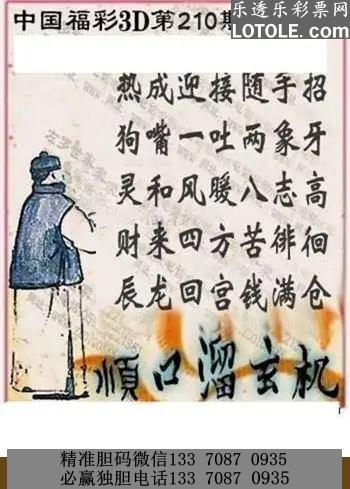 中国福彩3D第210期
乐透乐彩票网
LOTOLE.COM
热成迎接随手招
狗嘴一吐两象牙
灵和风暖八志高
财来四方苦徘徊
辰龙回宫钱满仓
顺口溜玄机
精准胆码微信133 7087 0935
必赢独胆电话133 7087 0935